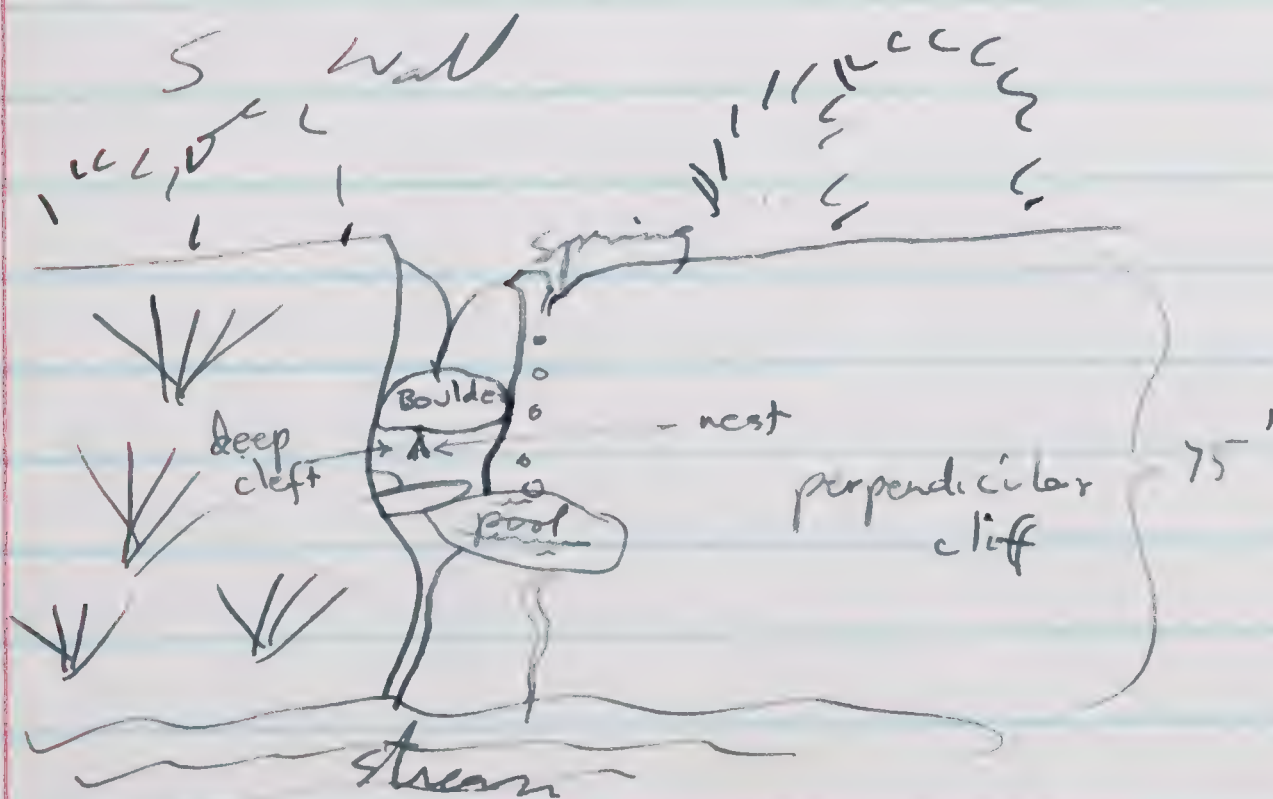 S Wall
Spring
Boulder
deep
cleft
- nest
pool
perpendicular
cliff
75'
stream